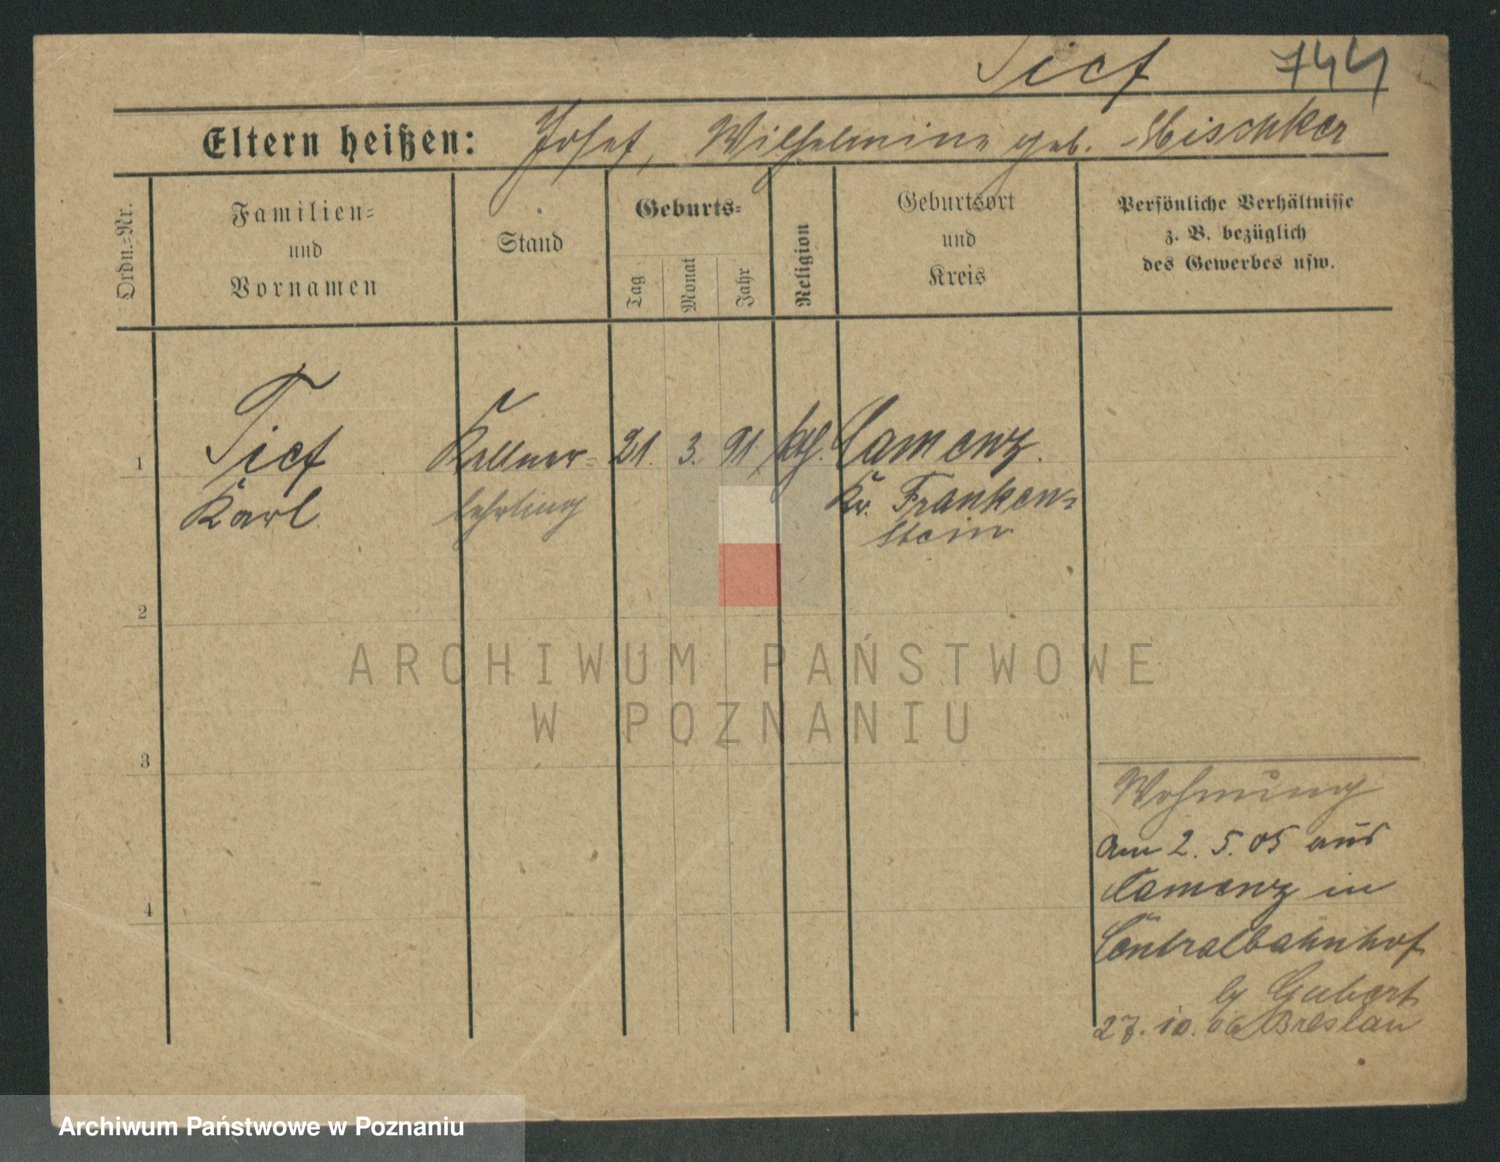 Tief 744
Eltern heißen: Josef, Wilhelmine geb. Mischker
Ordn.=Nr.
Familien=
und
Vornamen
Stand
Geburts=
Tag
Monat
Jahr
Religion
Geburtsort
und
Kreis
Persönliche Verhältnisse
z. B. bezüglich
des Gewerbes usw.
1
Tief
Karl
Kellner=
lehrling
21. 3. 91. kth.
Camenz.
Kr. Franken=
stein
2
3
4
Wohnung
am 2. 5. 05 aus
Camenz in
Centralbahnhof
by Gubert
27. 10. 06 Breslau
ARCHIWUM PAŃSTWOWE
W POZNANIU
Archiwum Państwowe w Poznaniu